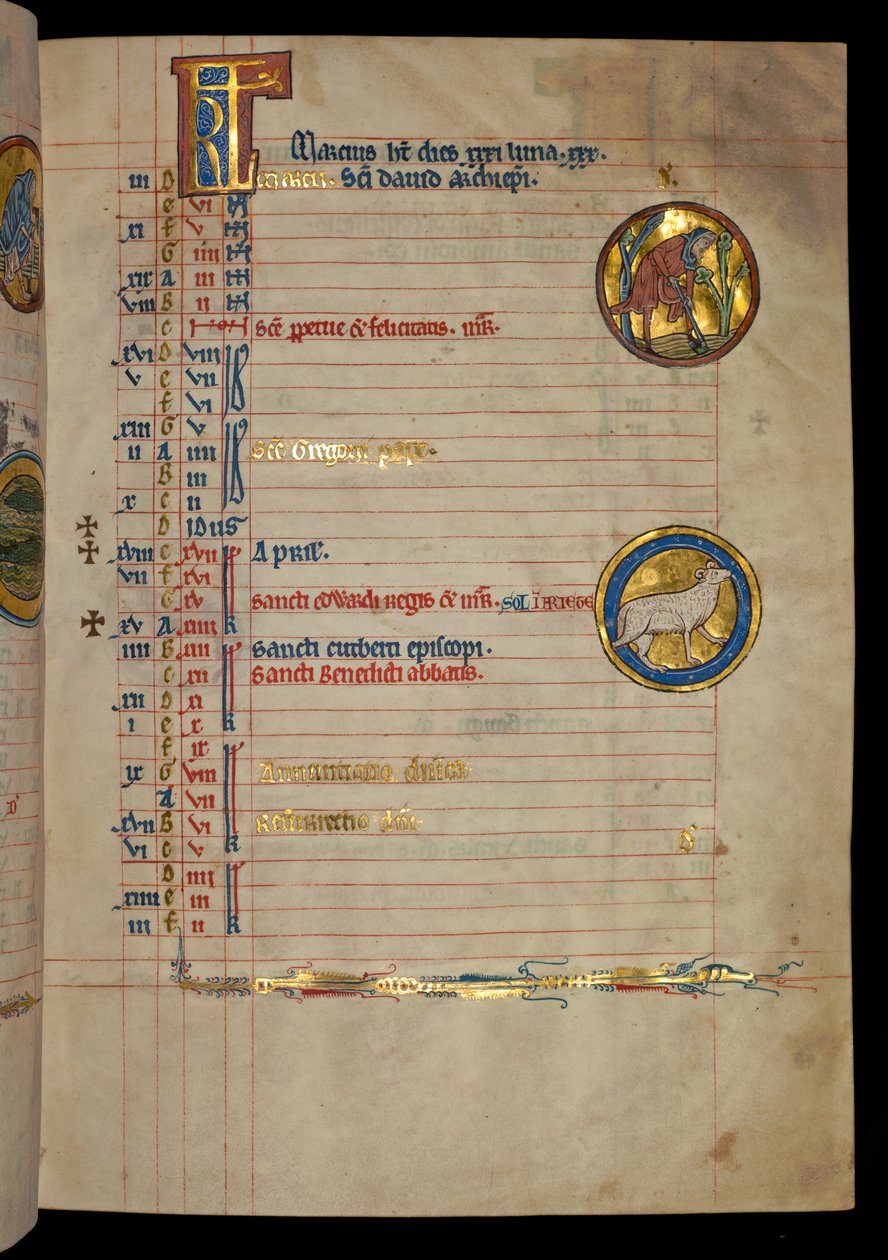 KL
Marcius ht dies xxxi luna. xxx.
iii D Marcii. Sci dauid Archiepi. D.
e vi N
xi f v N
G iiii N
xix A iii N
viii B ii N
c Non Sce ppetue & felicitatis. mr.
xvi D viii Id
v e vii
f vi
xiii G v Id
ii A iiii Sci Gregorii pape.
B iii
x c ii
D Idus
xviii e xvii k Aprił.
vii f xvi
G xv sancti edwardi Regis & mr. SOL I ARIETE
xv A xiiii k
iiii B xiii k sancti cutberti episcopi.
c xii sancti Benedicti abbatis.
xii D xi
i e x k
f ix k
ix G viii Annuntiatio dnica
A vii
xvii B vi Resurrectio dni
vi c v k D
D iiii k
xiiii e iii
iii f ii k